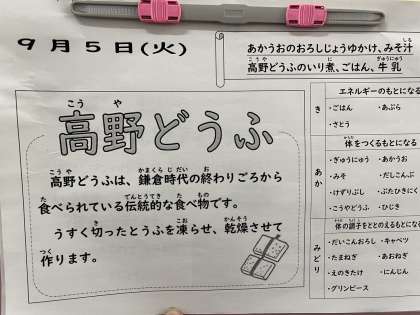 9月5日(火)
あかうおのおろしじょうゆかけ、みそ汁
高野どうふのいり煮、ごはん、牛乳
高野どうふ
高野どうふは、鎌倉時代の終わりごろから
食べられている伝統的な食べ物です。
うすく切ったとうふを凍らせ、乾燥させて
作ります。
き
エネルギーのもとになる
・ごはん ・あぶら
・さとう
あか
体をつくるもとになる
・ぎゅうにゅう ・あかうお
・みそ ・だしこんぶ
・けずりぶし ・ぶたひきにく
・こうやどうふ ・ひじき
みどり
体の調子をととのえるもとになる
・だいこんおろし ・キャベツ
・たまねぎ ・あおねぎ
・えのきたけ ・にんじん
・グリンピース